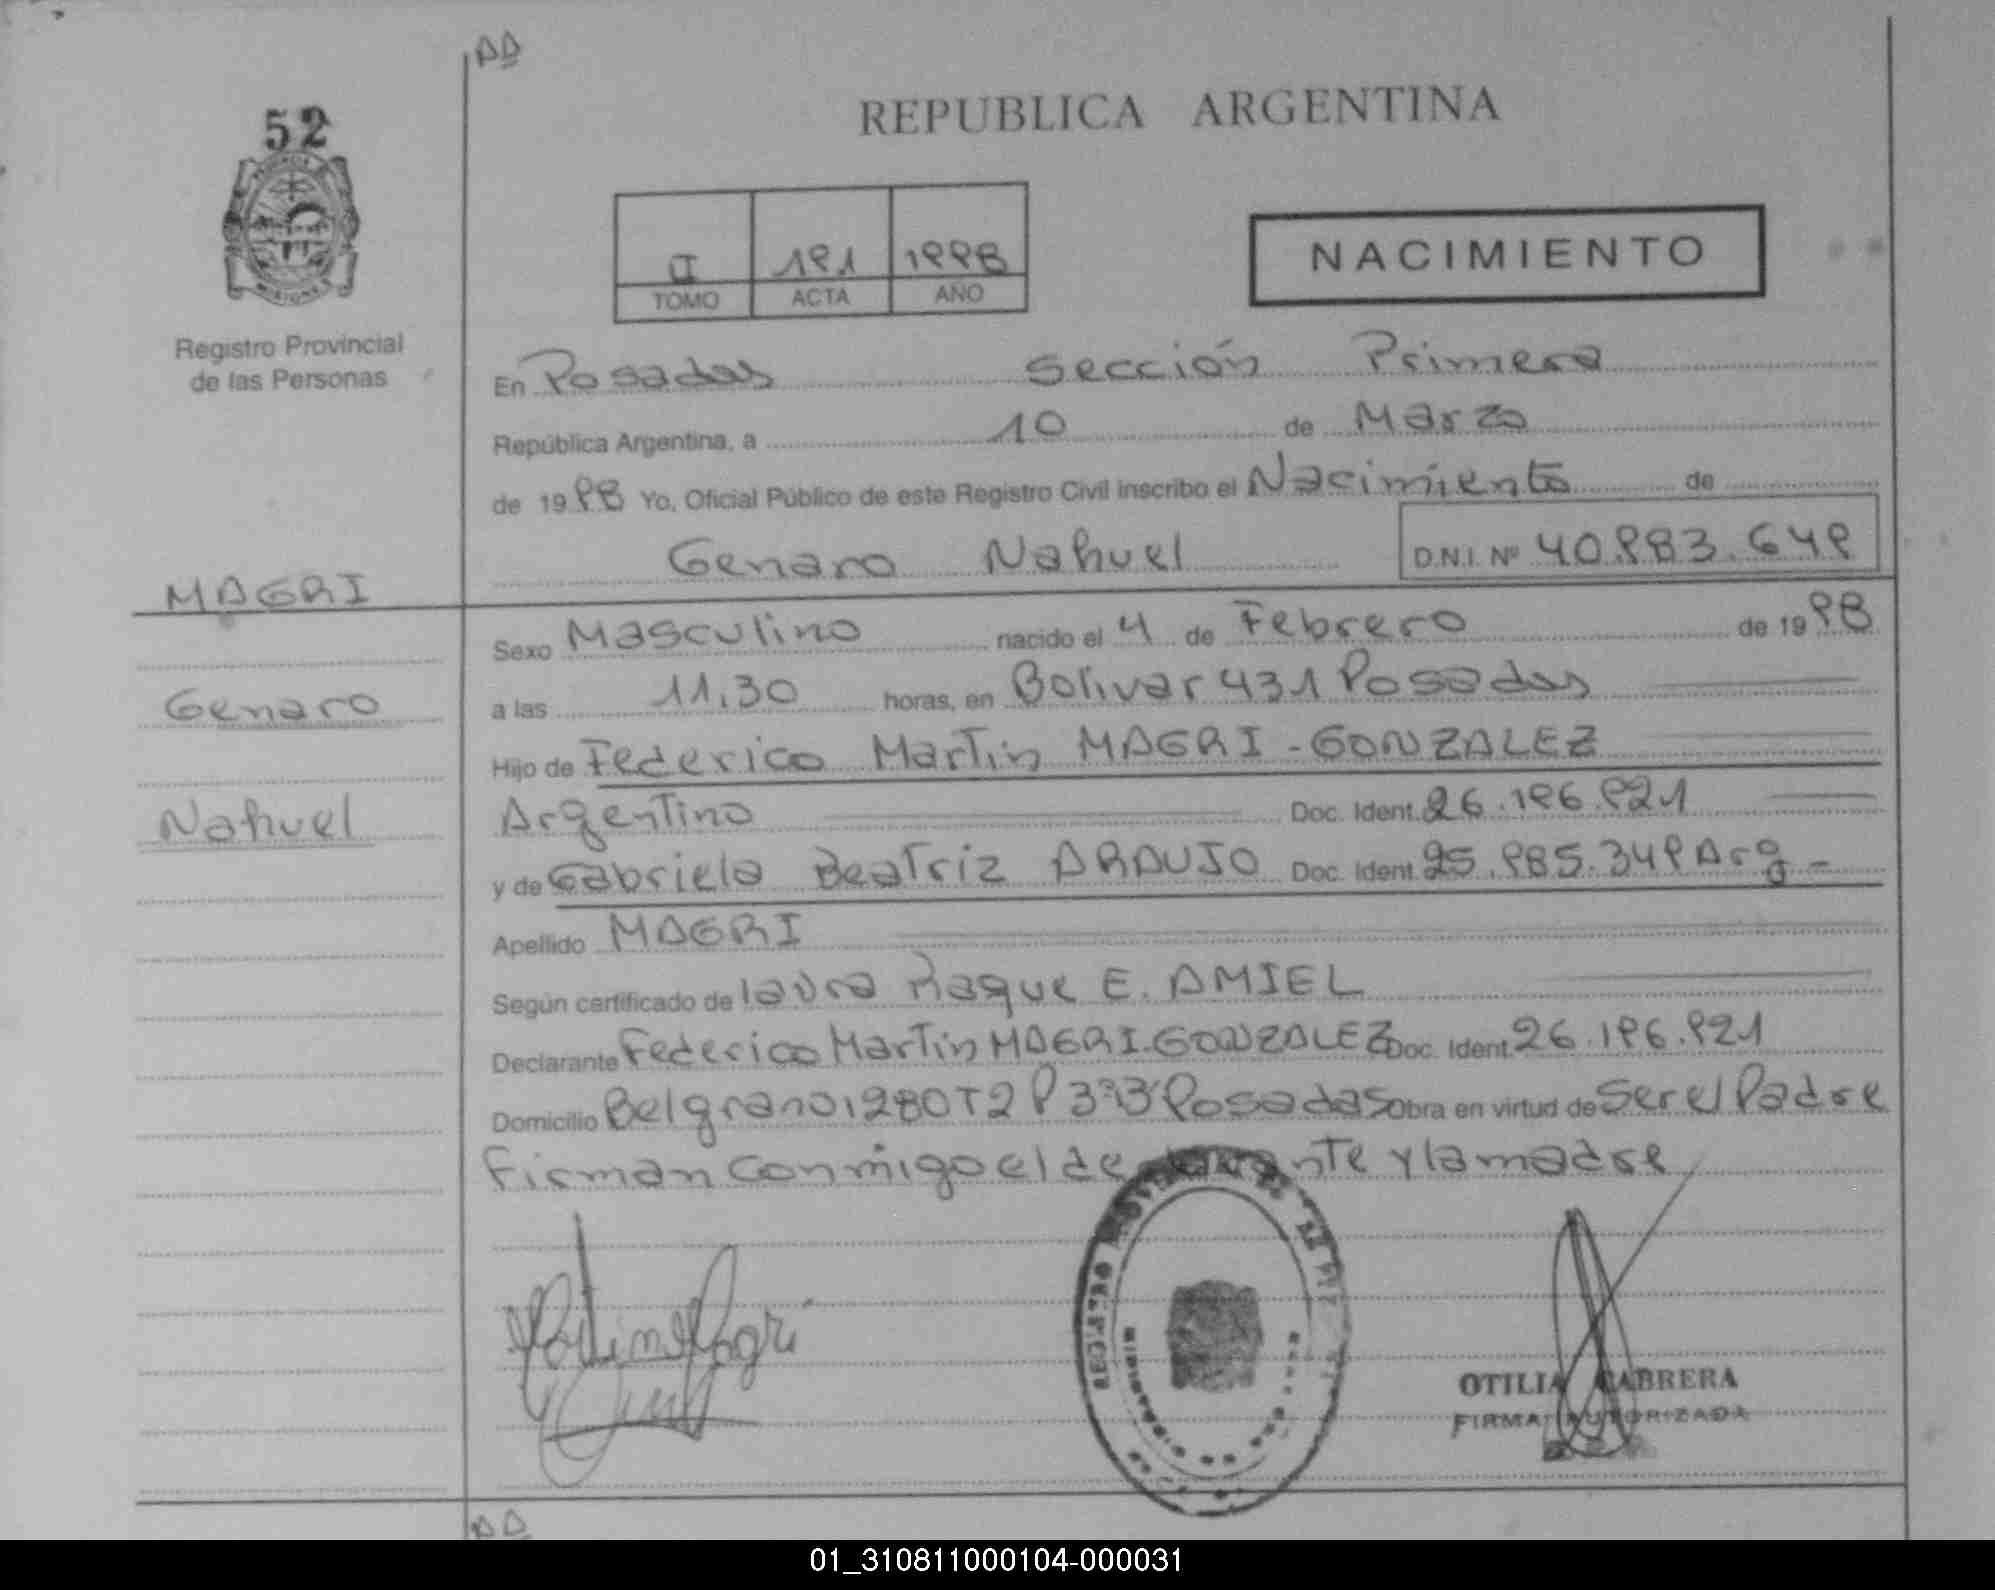 AA
52
REPUBLICA ARGENTINA
MISIONES
191 1998
TOMO ACTA AÑO
NACIMIENTO
Registro Provincial
de las Personas
En Posadas Sección Primera
República Argentina, a 10 de Marzo
de 1998 Yo, Oficial Público de este Registro Civil inscribo el Nacimiento de
Genaro Nahuel D.N.I. Nº 40.983.649
MAGRI
Genaro
Nahuel
Sexo Masculino nacido el 4 de Febrero de 1998
a las 11,30 horas, en Bolivar 431 Posadas
Hijo de Federico Martin MAGRI - GONZALEZ
Argentino Doc. Ident. 26.196.921
y de Gabriela Beatriz ARAUJO Doc. Ident. 25.985.349 Arg -
Apellido MAGRI
Según certificado de laura Raque E. AMIEL
Declarante Federico Martin MAGRI-GONZALEZ Doc. Ident. 26.196.921
Domicilio Belgrano 1280 T2 P 3º "B" Posadas Obra en virtud de Ser el Padre
Firman conmigo el declarante y la madre
Martin Magri
REGISTRO
OTILIA CABRERA
FIRMA AUTORIZADA
AA
01_310811000104-000031